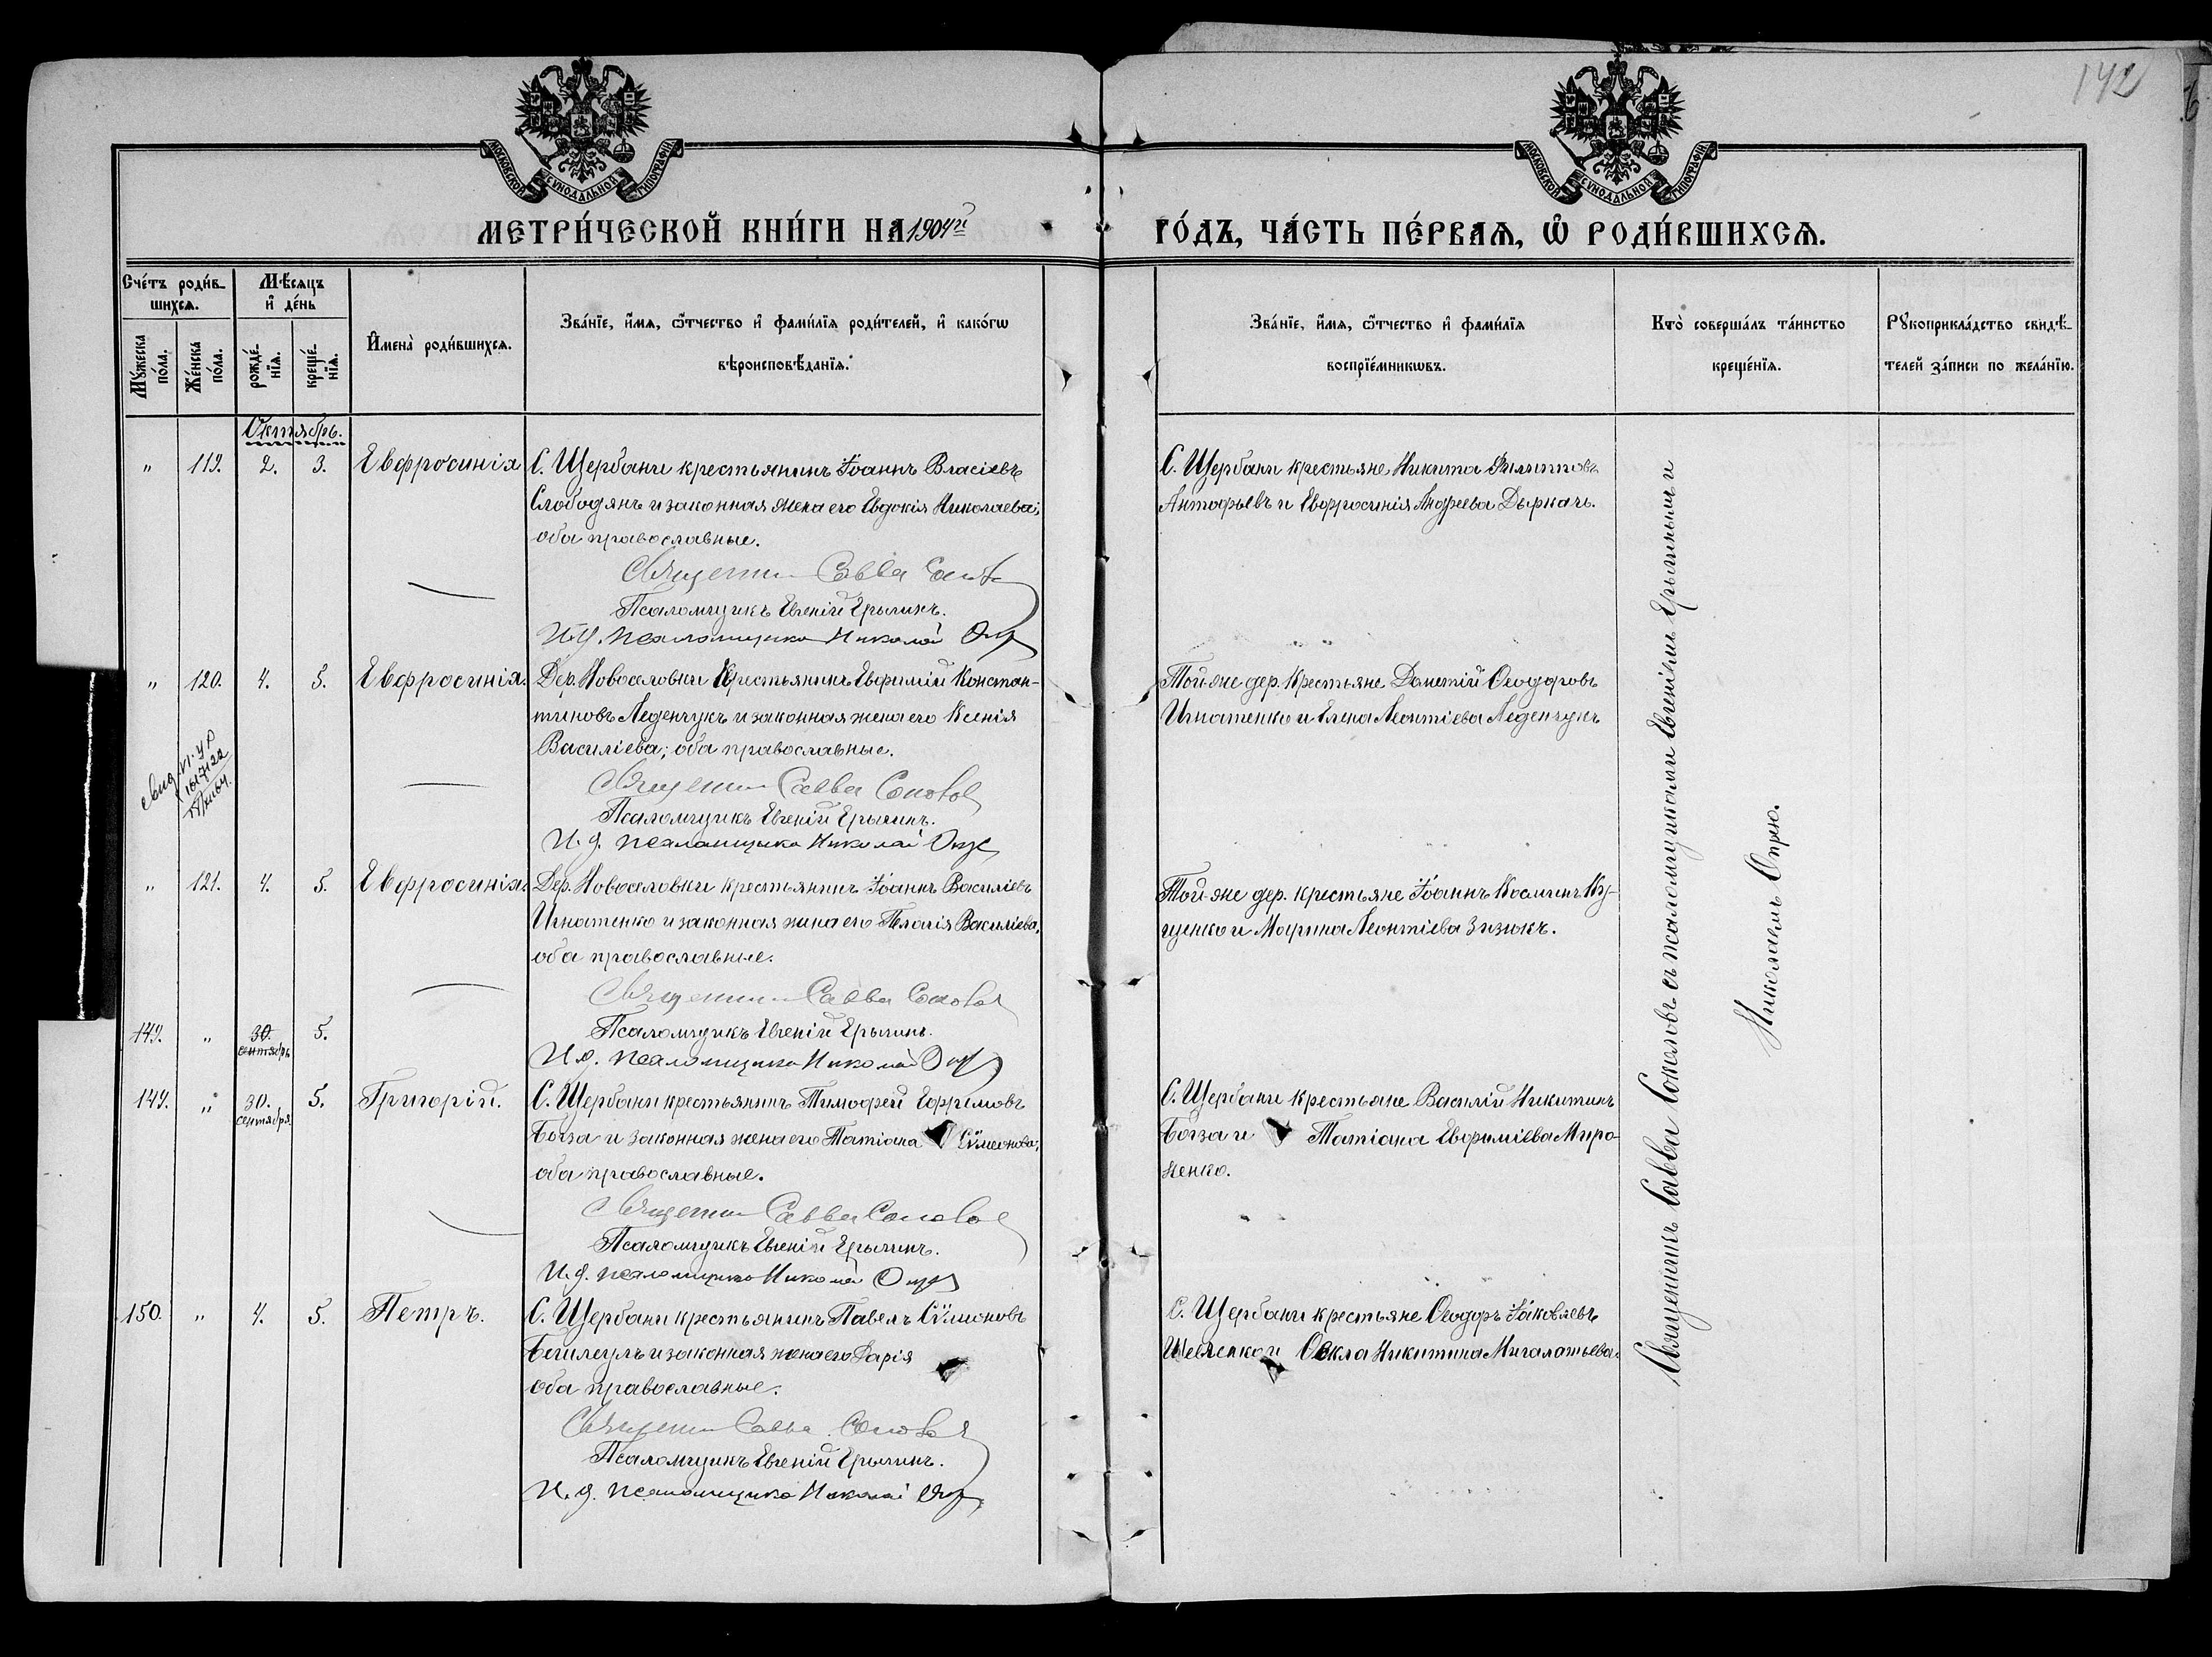 142
МОСКОВСКОЙ СѴНОДАЛЬНОЙ ТИПОГРАФІИ
МОСКОВСКОЙ СѴНОДАЛЬНОЙ ТИПОГРАФІИ
МЕТРИ́ЧЕСКОЙ КНИ́ГИ НА 1904й
ГО́ДЪ, ЧА́СТЬ ПЕ́РВАѦ, Ѽ РОДИ́ВШИХСѦ.
Сче́тъ роди́в-
шихсѧ.
Мѣ́сѧцъ
и҆ де́нь
Мꙋ́жеска по́ла.
Же́нска по́ла.
рожде́-нїѧ.
креще́-нїѧ.
И҆мена̀ роди́вшихсѧ.
Зва́нїе, и҆́мѧ, ѻ҆́тчество и҆ фами́лїѧ роди́телей, и҆ како́гѡ
вѣроисповѣ́данїѧ.
Зва́нїе, и҆́мѧ, ѻ҆́тчество и҆ фами́лїѧ
воспрїе́мникѡвъ.
Кто̀ соверша́лъ та́инство
креще́нїѧ.
Рꙋкоприкла́дство свидѣ́-
телей за́писи по жела́нїю.
Октябрь.
" 119. 2. 3. Евфросинія
С. Щербани крестьянинъ Іоаннъ Власіевъ
Слободянъ и законная жена его Евдокія Николаева;
оба православные.
Священник Савва Соколов
Псаломщикъ Евгеній Ерылинъ.
И. д. псаломщика Николай
С. Щербани крестьяне Никита Филипповъ
Антофьевъ и Евфросинія Андреева Дыркачь.
" 120. 4. 5. Евфросинія.
Дер. Новоселовки крестьянинъ Евфимій Констан-
тиновъ Леденчукъ и законная жена его Ксенія
Василіева; оба православные.
Священник Савва Соколов
Псаломщикъ Евгеній Ерылинъ.
И. д. псаломщика Николай
Той-же дер. крестьяне Дометій Ѳеодоровъ
Игнатенко и Елена Леонтіева Леденчукъ
" 121. 4. 5. Евфросинія.
Дер. Новоселовки крестьянинъ Іоаннъ Василіевъ
Игнатенко и законная жена его Пелагія Василіева,
оба православные.
Священник Савва Соколов
Псаломщикъ Евгеній Ерылинъ.
И. д. псаломщика Николай
Той-же дер. крестьяне Іоаннъ Косминъ Ку-
ценко и Марина Леонтіева Зизюкъ.
149. " 30. сентябрь 5.
149. " 30. сентября 5. Григорій.
С. Щербани крестьянинъ Тимофей Ефремовъ
Богза и законная жена его Татіана Сѵмеонова,
оба православные.
Священник Савва Соколов
Псаломщикъ Евгеній Ерылинъ.
И. д. псаломщика Николай
С. Щербани крестьяне Василій Никитинъ
Богза и Татіана Евфиміева Миро-
ненко.
150. " 4. 5. Петръ.
С. Щербани крестьянинъ Павелъ Сѵмеоновъ
Бешлеулъ и законная жена его Дарія
оба православные.
Священник Савва Соколов
Псаломщикъ Евгеній Ерылинъ.
И. д. псаломщика Николай
С. Щербани крестьяне Ѳеодоръ Іаковлевъ
Шевченко и Ѳекла Никитина Мигалатьева.
Священникъ Савва Соколовъ съ псаломщиками Евгеніемъ Ерылинымъ и
Николаемъ Опрю.